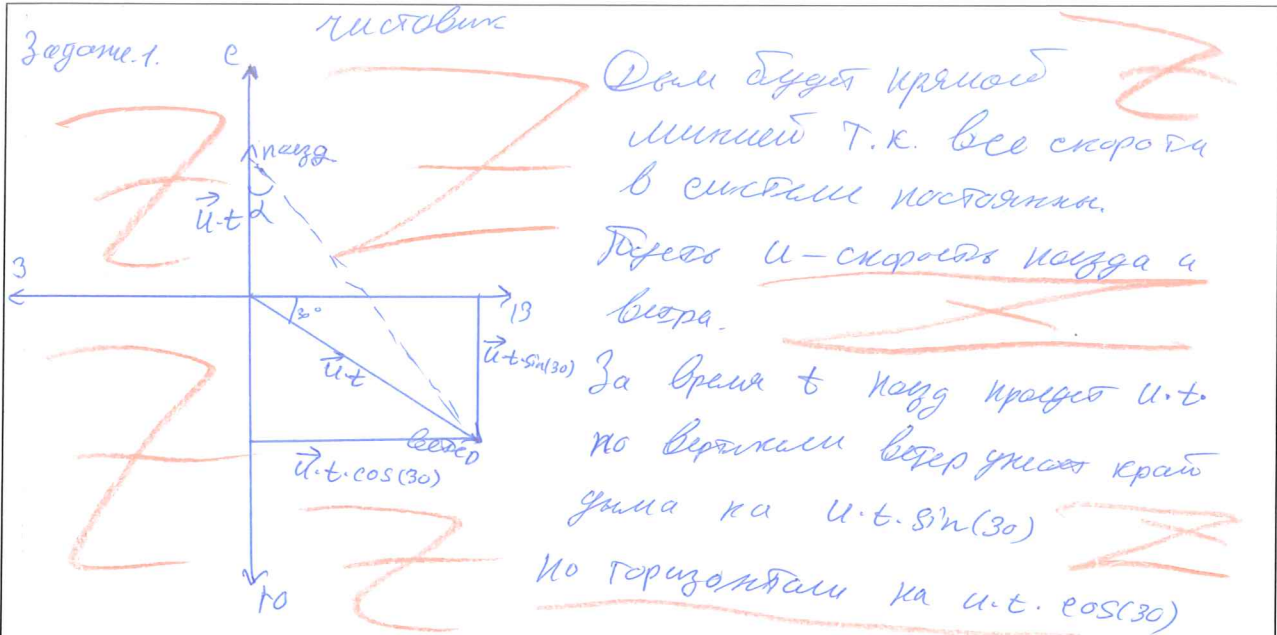 чистовик
Задание.1.
С
поезд
α
u⃗·t
З
В
30°
u⃗·t
u⃗·t·sin(30)
ветер
u⃗·t·cos(30)
Ю
Дым будет прямой
линией т.к. все скорости
в системе постоянны.
Пусть u – скорость поезда и
ветра.
За время t поезд проедет u·t.
по вертикали ветер унесёт край
дыма на u·t·sin(30)
по горизонтали на u·t·cos(30)